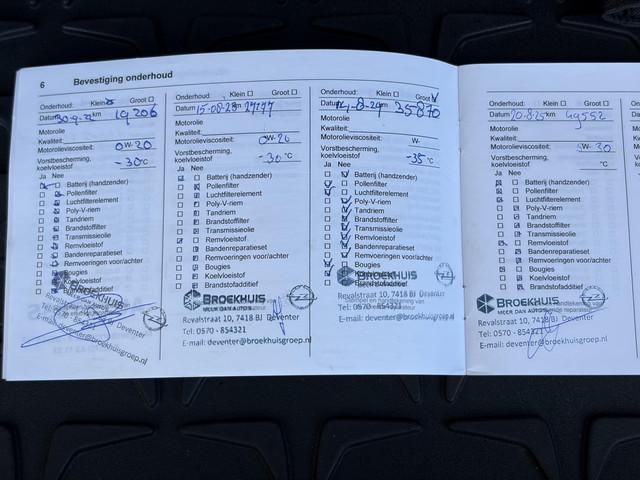 6 Bevestiging onderhoud
Onderhoud: Klein Groot
Datum km 19206
Motorolie
Kwaliteit:
Motorolieviscositeit: 0W-20
Vorstbescherming, koelvloeistof -30°C
Ja Nee
Batterij (handzender)
Pollenfilter
Luchtfilterelement
Poly-V-riem
Tandriem
Brandstoffilter
Transmissieolie
Remvloeistof
Bandenreparatieset
Remvoeringen voor/achter
Bougies
Koelvloeistof
Brandstofadditief
BROEKHUIS
Revalstraat
Deventer
Tel: 0570
E-mail: deventer@broekhuisgroep.nl
Onderhoud: Klein Groot
Datum 15-08-23 km 27177
Motorolie
Kwaliteit:
Motorolieviscositeit: 0W-20
Vorstbescherming, koelvloeistof -30 °C
Ja Nee
Batterij (handzender)
Pollenfilter
Luchtfilterelement
Poly-V-riem
Tandriem
Brandstoffilter
Transmissieolie
Remvloeistof
Bandenreparatieset
Remvoeringen voor/achter
Bougies
Koelvloeistof
Brandstofadditief
BROEKHUIS
MEER DAN AUTO'S
Revalstraat 10, 7418 BJ Deventer
Tel: 0570 - 854321
E-mail: deventer@broekhuisgroep.nl
Onderhoud: Klein Groot
Datum 14-8-24 km 35870
Motorolie
Kwaliteit:
Motorolieviscositeit: W-
Vorstbescherming, koelvloeistof -35 °C
Ja Nee
Batterij (handzender)
Pollenfilter
Luchtfilterelement
Poly-V-riem
Tandriem
Brandstoffilter
Transmissieolie
Remvloeistof
Bandenreparatieset
Remvoeringen voor/achter
Bougies
BROEKHUIS
Revalstraat 10, 7418 BJ Deventer
Tel: 0570 - 854321
E-mail: deventer@broekhuisgroep.nl
Onderhoud: Klein Groot
Datum 20-8-25 km 49552
Motorolie
Kwaliteit:
Motorolieviscositeit: W- 30
Vorstbescherming, koelvloeistof °C
Ja Nee
Batterij (handzender)
Pollenfilter
Luchtfilterelement
Poly-V-riem
Tandriem
Brandstoffilter
Transmissieolie
Remvloeistof
Bandenreparatieset
Remvoeringen voor/achter
Bougies
Koelvloeistof
Brandstofadditief
BROEKHUIS
MEER DAN AUTO'S
Revalstraat 10, 7418 BJ Deventer
Tel: 0570 - 854321
E-mail: deventer@broekhuisgroep.nl